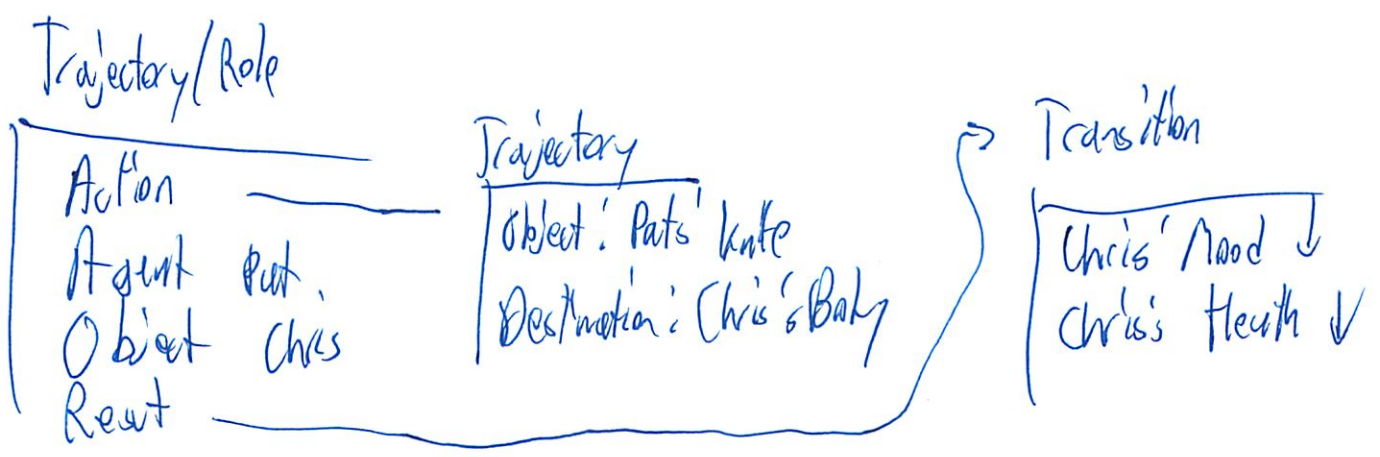 Trajectory/Role
Action
Agent Pat.
Object Chris
Result
Trajectory
Object: Pats' knife
Destination: Chris's Body
Transition
Chris' Mood ↓
Chris's Health ↓